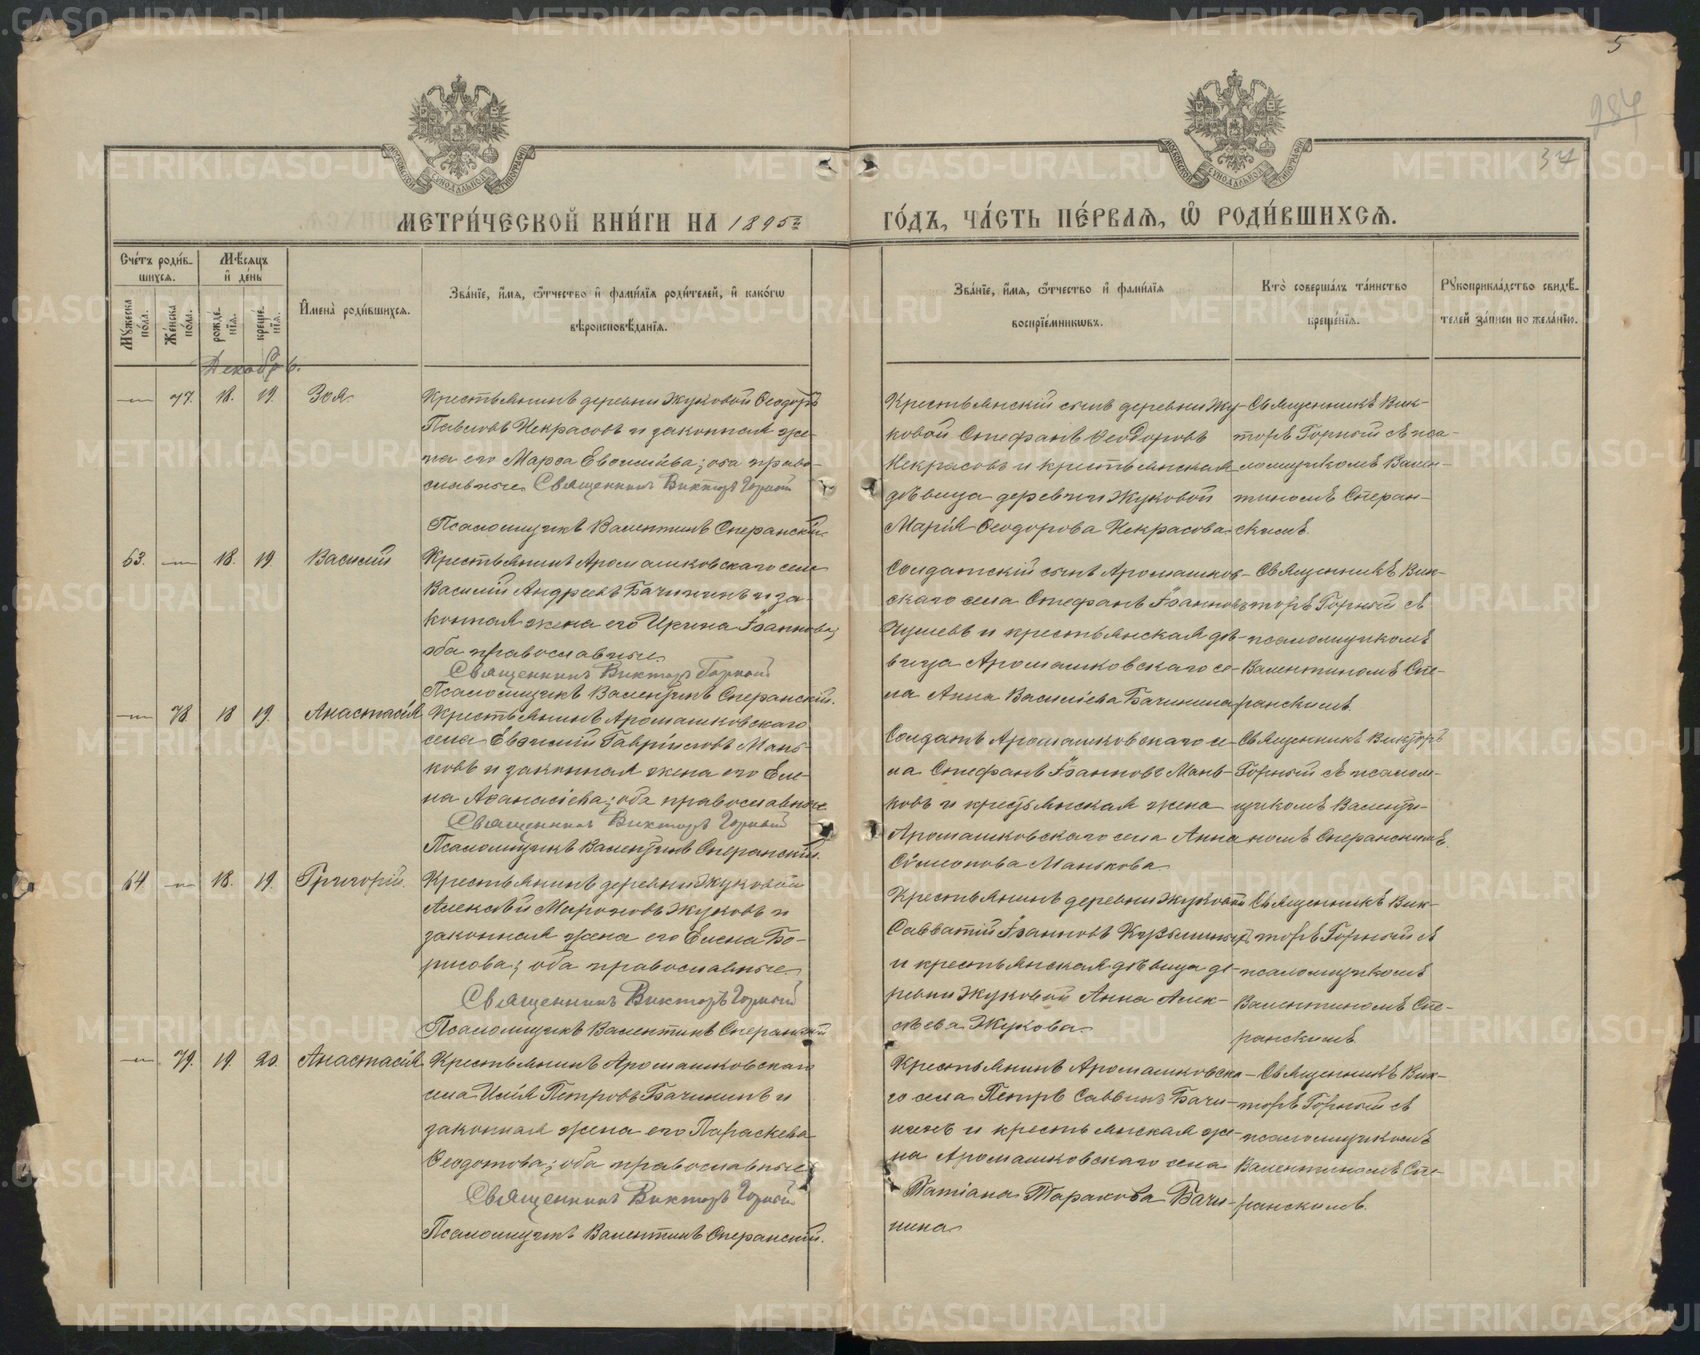 5
984
34
МЕТРИ́ЧЕСКОЙ КНИ́ГИ НА 1895 г
ГО́ДЪ, ЧА́СТЬ ПЕ́РВАѦ, Ѡ РОДИ́ВШИХСѦ.
Сче́тъ роди́в-
шихсѧ.
Мѣ́сѧцъ
и де́нь
Му́жеска по́ла.
Же́нска по́ла.
рожде́-
нїѧ.
креще́-
нїѧ.
Имена̀ роди́вшихсѧ.
Зва́нїе, и́мѧ, ѻ́тчество и фами́лїѧ роди́телей, и како́гѡ
вѣроисповѣ́данїѧ.
Зва́нїе, и́мѧ, ѻ́тчество и фами́лїѧ
воспрїе́мникѡвъ.
Кто̀ соверша́лъ та́инство
креще́нїѧ.
Рꙋкоприкла́дство свидѣ́-
телей за́писи по жела́нїю.
Декабрь.
— 77. 18. 19. Зоя
Крестьянинъ деревни Жуковой Ѳеодоръ
Павловъ Некрасовъ и законная же-
на его Марѳа Евѳиміева; оба право-
славные. Священникъ Викторъ Горный
Псаломщикъ Валентинъ Сперанскій.
Крестьянскій сынъ деревни Жу-
ковой Стефанъ Ѳеодоровъ
Некрасовъ и крестьянская
дѣвица деревни Жуковой
Марія Ѳеодорова Некрасова.
Священникъ Вик-
торъ Горный съ пса-
ломщикомъ Вален-
тиномъ Сперан-
скимъ.
63. — 18. 19. Василій
Крестьянинъ Аромашковскаго села
Василій Андреевъ Бачининъ и за-
конная жена его Ирина Іоаннова;
оба православные.
Священникъ Викторъ Горный
Псаломщикъ Валентинъ Сперанскій.
Солдатскій сынъ Аромашков-
скаго села Стефанъ Іоанновъ
и крестьянская дѣ-
вица Аромашковскаго се-
ла Анна Василіева Бачинина
Священникъ Вик-
торъ Горный съ
псаломщикомъ
Валентиномъ Спе-
ранскимъ
— 78 18 19. Анастасія
Крестьянинъ Аромашковскаго
села Евѳимій Гавріиловъ Мань-
ковъ и законная жена его Еле-
на Аѳанасіева; оба православные
Священникъ Викторъ Горный
Псаломщикъ Валентинъ Сперанскій.
Солдатъ Аромашковскаго се-
ла Стефанъ Іоанновъ Мань-
ковъ и крестьянская жена
Аромашковскаго села Анна
Сѵмеонова Манькова
Священникъ Викторъ
Горный съ псалом-
щикомъ Валенти-
номъ Сперанскимъ.
64 — 18. 19. Григорій.
Крестьянинъ деревни Жуковой
Алексѣй Мироновъ Жуковъ и
законная жена его Елена Бо-
рисова; оба православные.
Священникъ Викторъ Горный
Псаломщикъ Валентинъ Сперанскій
Крестьянинъ деревни Жуковой
Савватій Іоанновъ
и крестьянская дѣвица де-
ревни Жуковой Анна Алек-
сѣева Жукова.
Священникъ Вик-
торъ Горный съ
псаломщикомъ
Валентиномъ Спе-
ранскимъ
— 79. 19. 20. Анастасія
Крестьянинъ Аромашковскаго
села Исаія Петровъ Бачининъ и
законная жена его Параскева
Ѳеодотова; оба православные
Священникъ Викторъ Горный
Псаломщикъ Валентинъ Сперанскій.
Крестьянинъ Аромашковска-
го села Петръ Саввинъ Бачи-
нинъ и крестьянская же-
на Аромашковскаго села
Татіана Тарахова Бачи-
нина.
Священникъ Вик-
торъ Горный съ
псаломщикомъ
Валентиномъ Спе-
ранскимъ.
METRIKI.GASO-URAL.RU